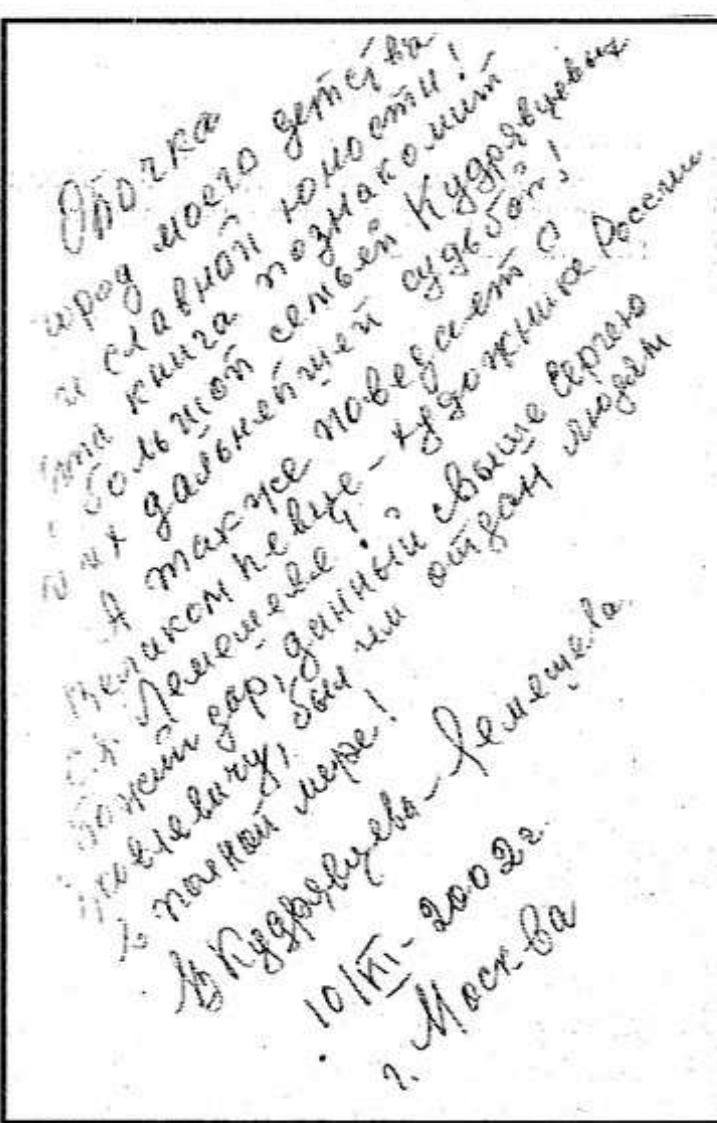 Опочка
город моего детства
и славной юности!
Эта книга познакомит
с большой семьей Кудрявцевых
и их дальнейшей судьбой!
А также поведает о
Великом певце-художнике России
С.Я. Лемешеве!
Божий дар, данный свыше Сергею
Яковлевичу, был им отдан людям
в полной мере!
ВКудрявцева-Лемешева.
10/III-2002г.
г. Москва